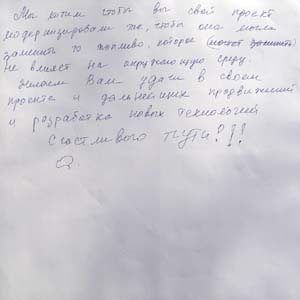 Мы хотим чтобы вы свой проект
модернизировали же, чтобы она могла
заменить то топливо, которое (может заменить)
не влияет на окружающую среду
Желаем Вам удачи в своем
проекте и дальнейших продвижений
и разработка новых технологий
Счастливого пути?!!